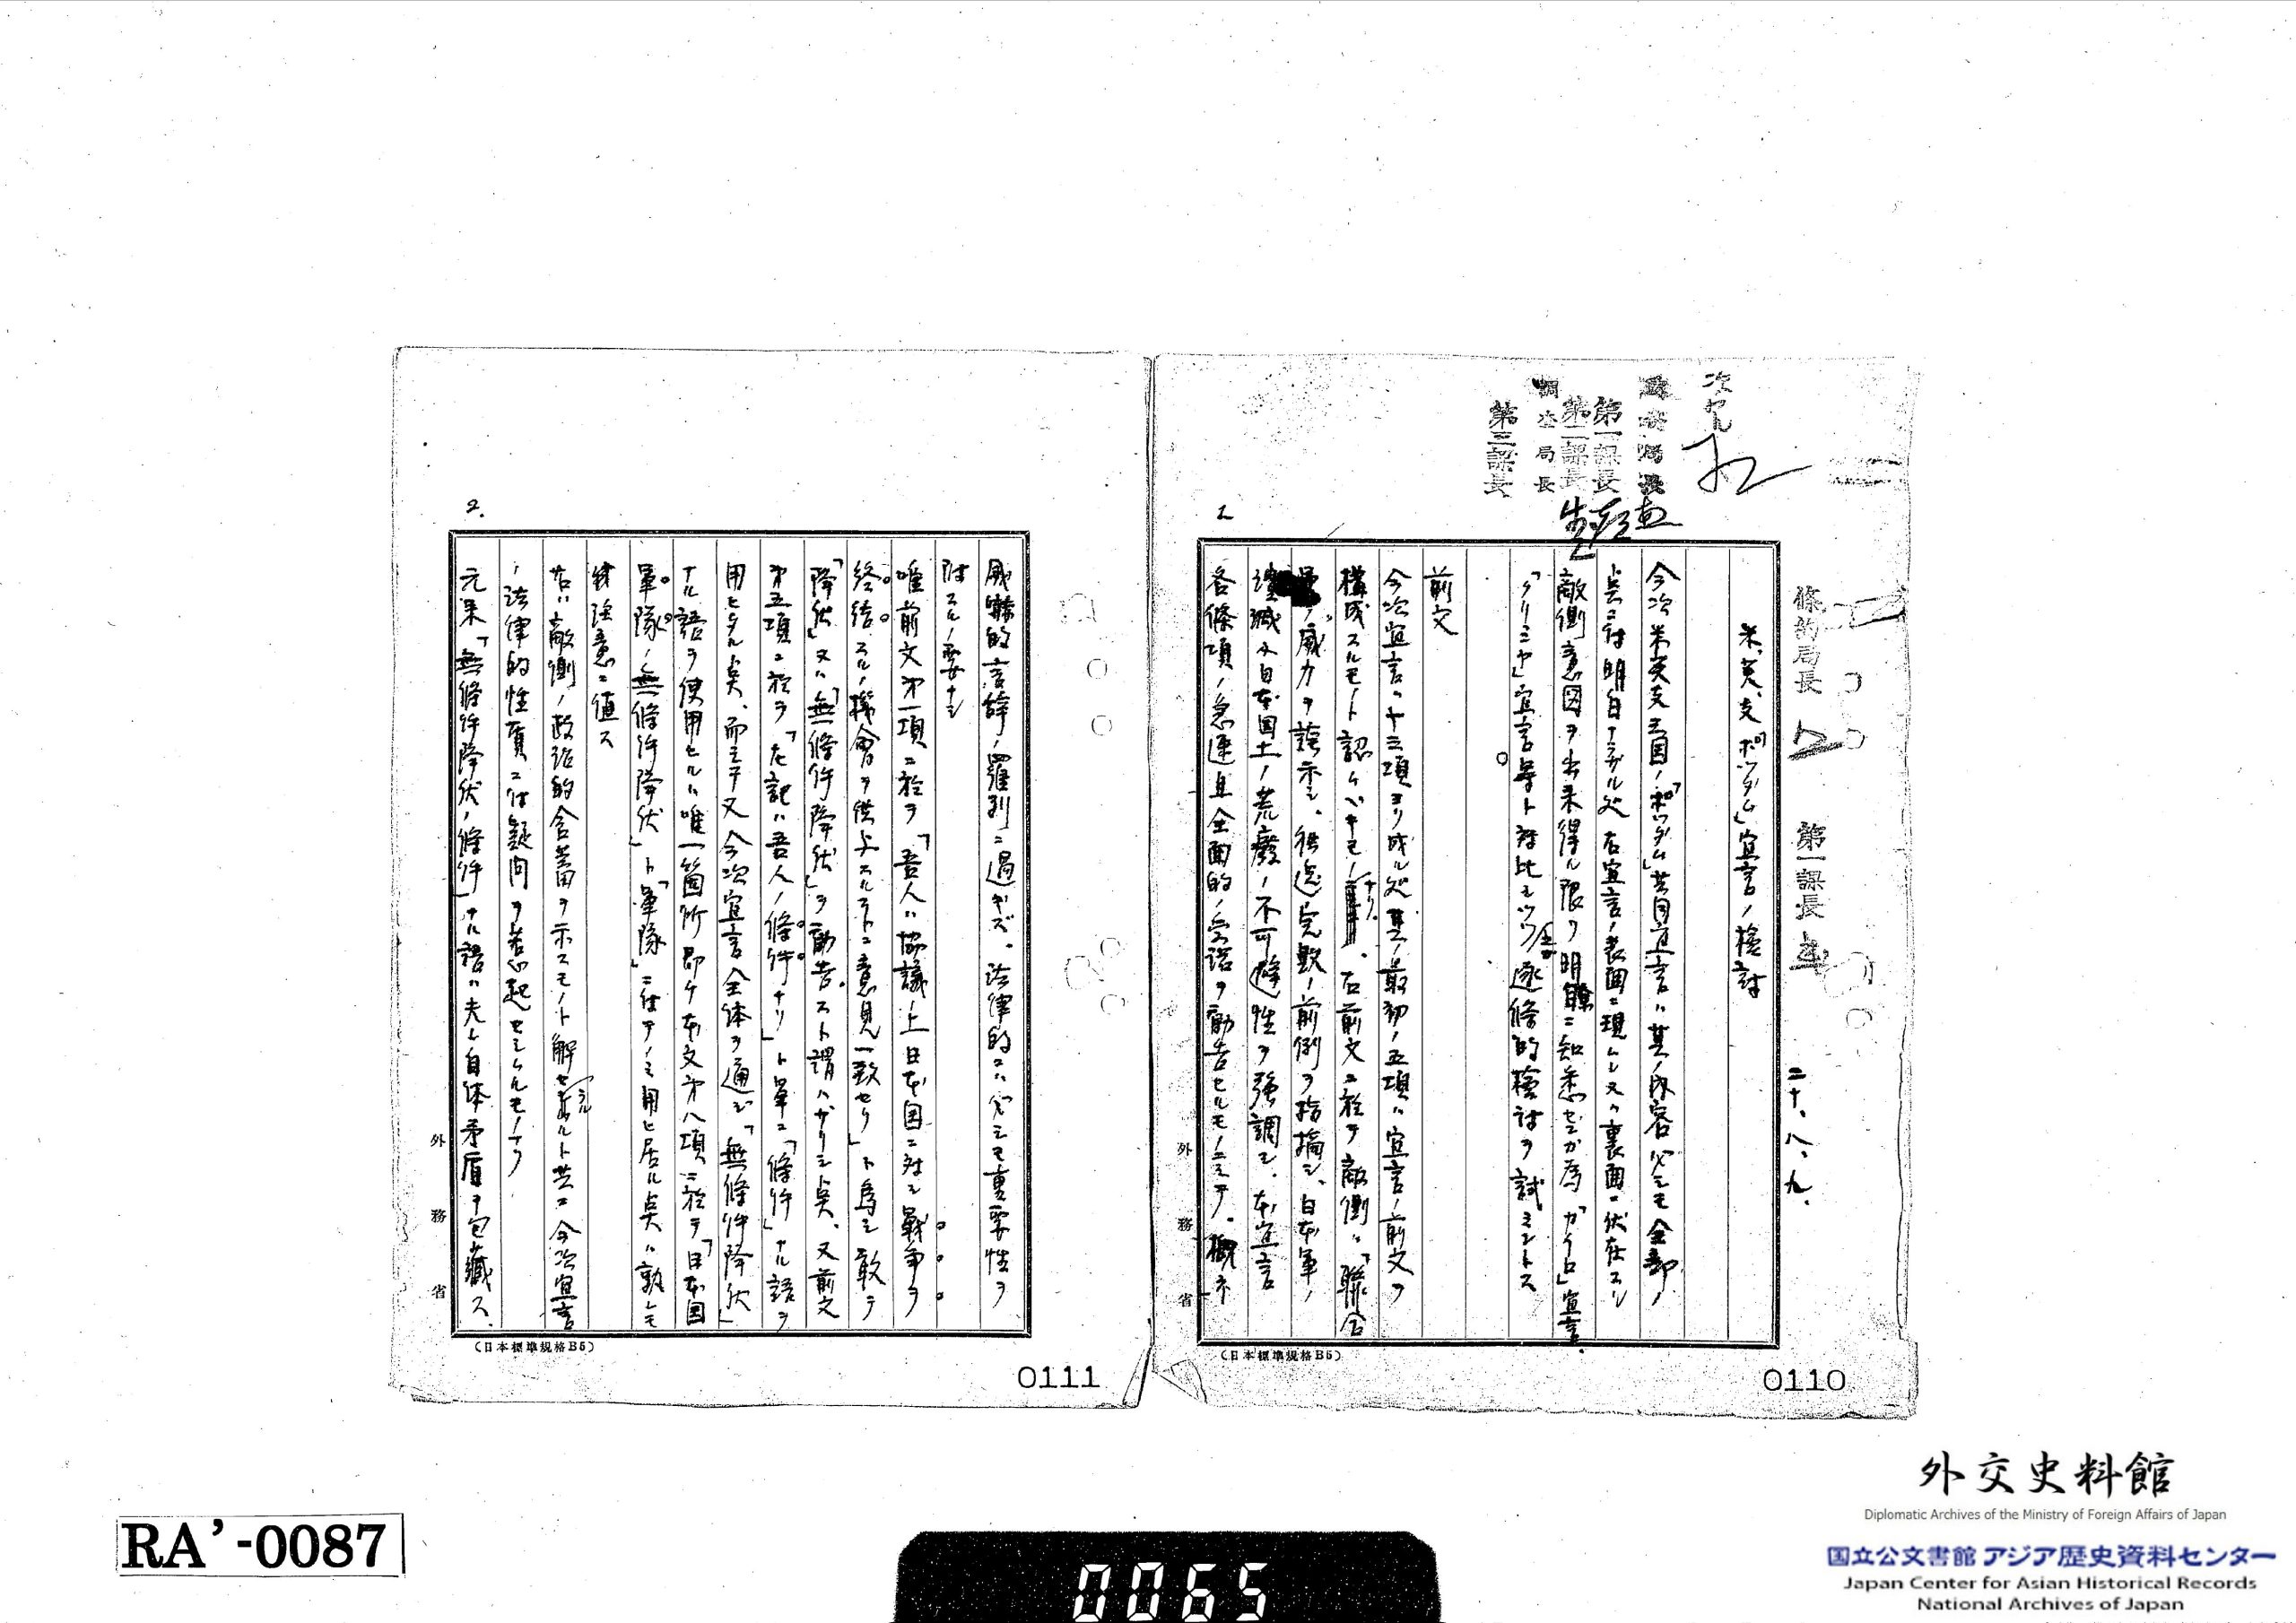 條約局長
第一課長
二十、八、九、
次官
政務局長
第一課長
第二課長
調査局長
第三課長
米、英、支「ポツダム」宣言ノ檢討
今次米英支三国ノ「ポツダム」共同宣言ハ其ノ内容必シモ全部ノ
点ニ付明白ナラザル処右宣言ノ表面ニ現レ又ハ裏面ニ伏在スル
敵側意図ヲ出来得ル限リ明瞭ニ知悉センガ為「カイロ」宣言、
「クリミヤ」宣言等ト対比シツツ逐條的檢討ヲ試ミントス
前文
今次宣言ハ十三項ヨリ成ル処其ノ最初ノ五項ハ宣言ノ前文ヲ
構成スルモノト認ムベキモノナリ。右前文ニ於テ敵側ハ「聯合
軍」ノ威力ヲ誇示シ、独逸完敗ノ前例ヲ指摘シ、日本軍ノ
壊滅及日本国土ノ荒廢ノ不可避性ヲ強調シ、本宣言
各條項ノ急速且全面的ノ受諾ヲ勸告セルモノニシテ、概ネ
1
外務省
(日本標準規格B5)
0110
威嚇的言辞ノ羅列ニ過ギズ。法律的ニハ必シモ重要性ヲ
附スルノ要ナシ
唯前文第一項ニ於テ「吾人ハ協議ノ上日本国ニ対シ戦争ヲ
終結スルノ機會ヲ供与スルコトニ意見一致セリ」ト為シ敢テ
「降伏」又ハ「無條件降伏」ヲ勸告スト謂ハザリシ点、又前文
第五項ニ於テ「左記ハ吾人ノ條件ナリ」ト単ニ「條件」ナル語ヲ
用ヒタル点、而シテ又今次宣言全体ヲ通ジ「無條件降伏」
ナル語ヲ使用セルハ唯一箇所即チ本文第八項ニ於テ「日本国
軍隊ノ無條件降伏」ト「軍隊」ニ付テノミ用ヒ居ル点ハ孰レモ
注意ニ値ス
右ハ敵側ノ政治的含蓄ヲ示スモノト解セラルルト共ニ今次宣言
ノ法律的性質ニ付疑問ヲ惹起セシムルモノナリ
元来「無條件降伏ノ條件」ナル語ハ夫レ自体矛盾ヲ包藏ス、
2.
外務省
(日本標準規格B5)
0111
RA'-0087
0065
外交史料館
Diplomatic Archives of the Ministry of Foreign Affairs of Japan
国立公文書館 アジア歴史資料センター
Japan Center for Asian Historical Records
National Archives of Japan